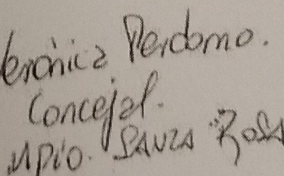 Verónica Perdomo.
Concejal.
Mpio. Santa Rosa